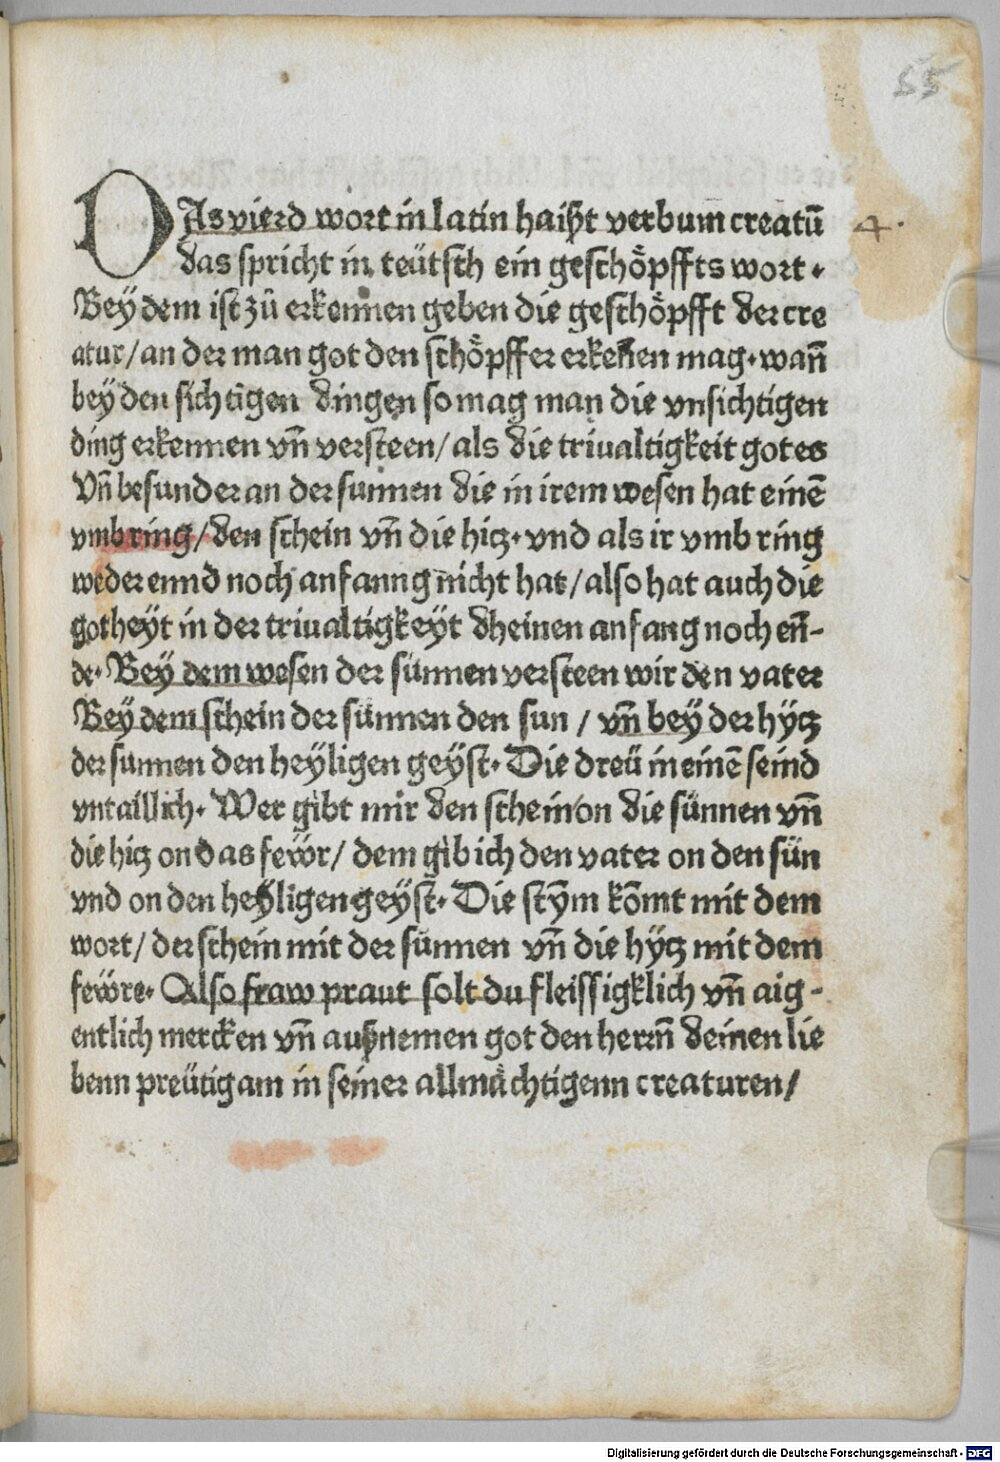 55
DAs vierd wort in latin haißt verbum creatū
4.
das spricht in teütsch ein geschöpffts wort.
Bey dem ist zů erkennen geben die geschöpfft der cre
atur/ an der man got den schöpffer erkeñen mag. wañ
bey den sichtigen dingen so mag man die vnsichtigen
ding erkennen vñ versteen/ als die triualtigkeit gotes
Vñ besunder an der sunnen die in irem wesen hat einē
vmbring/ den schein vñ die hitz. vnd als ir vmbring
weder ennd noch anfanng nicht hat/ also hat auch die
gotheyt in der triualtigkeyt dheinen anfang noch eñ-
de. Bey dem wesen der sünnen versteen wir den vater
Bey dem schein der sünnen den sun / vñ bey der hytz
der sunnen den heyligen geyst. Die dreü in einē seind
vntaillich. Wer gibt mir den schein on die sünnen vñ
die hitz on das fewr/ dem gib ich den vater on den sün
vnd on den heyligen geyst. Die stym kōmt mit dem
wort/ der schein mit der sünnen vñ die hytz mit dem
fewre. Also fraw praut solt du fleissigklich vñ aig-
entlich mercken vñ außnemen got den herrñ deinen lie
benn preütigam in seiner allmächtigenn creaturen/
Digitalisierung gefördert durch die Deutsche Forschungsgemeinschaft - DFG